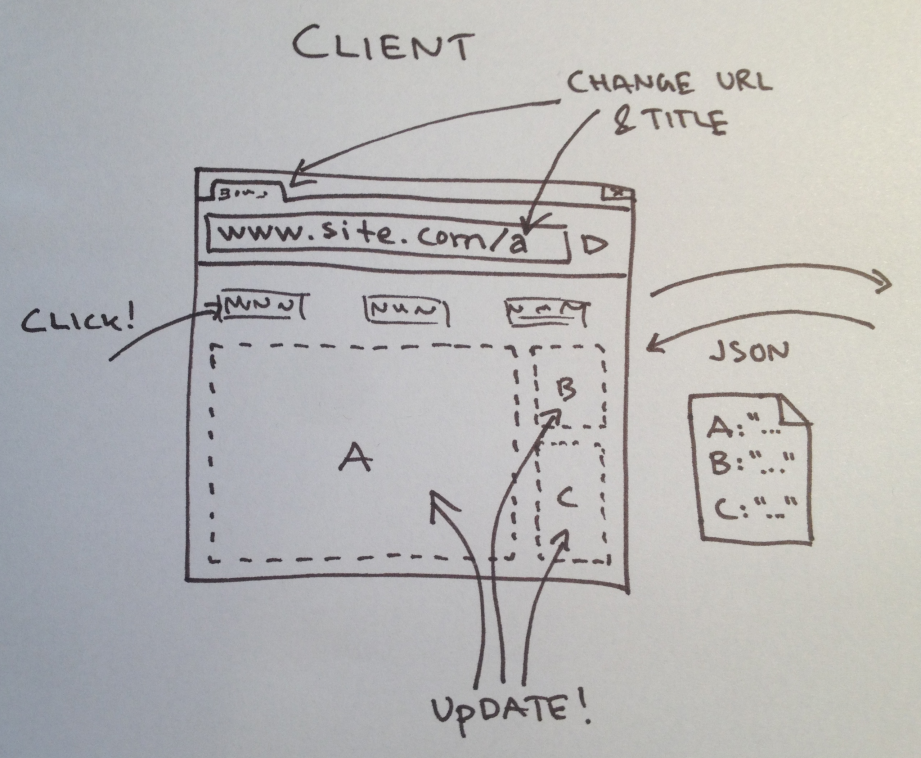 CLIENT
CHANGE URL
& TITLE
www.site.com/a
CLICK!
JSON
A
B
C
A:"..."
B:"..."
C:"..."
UpDATE!